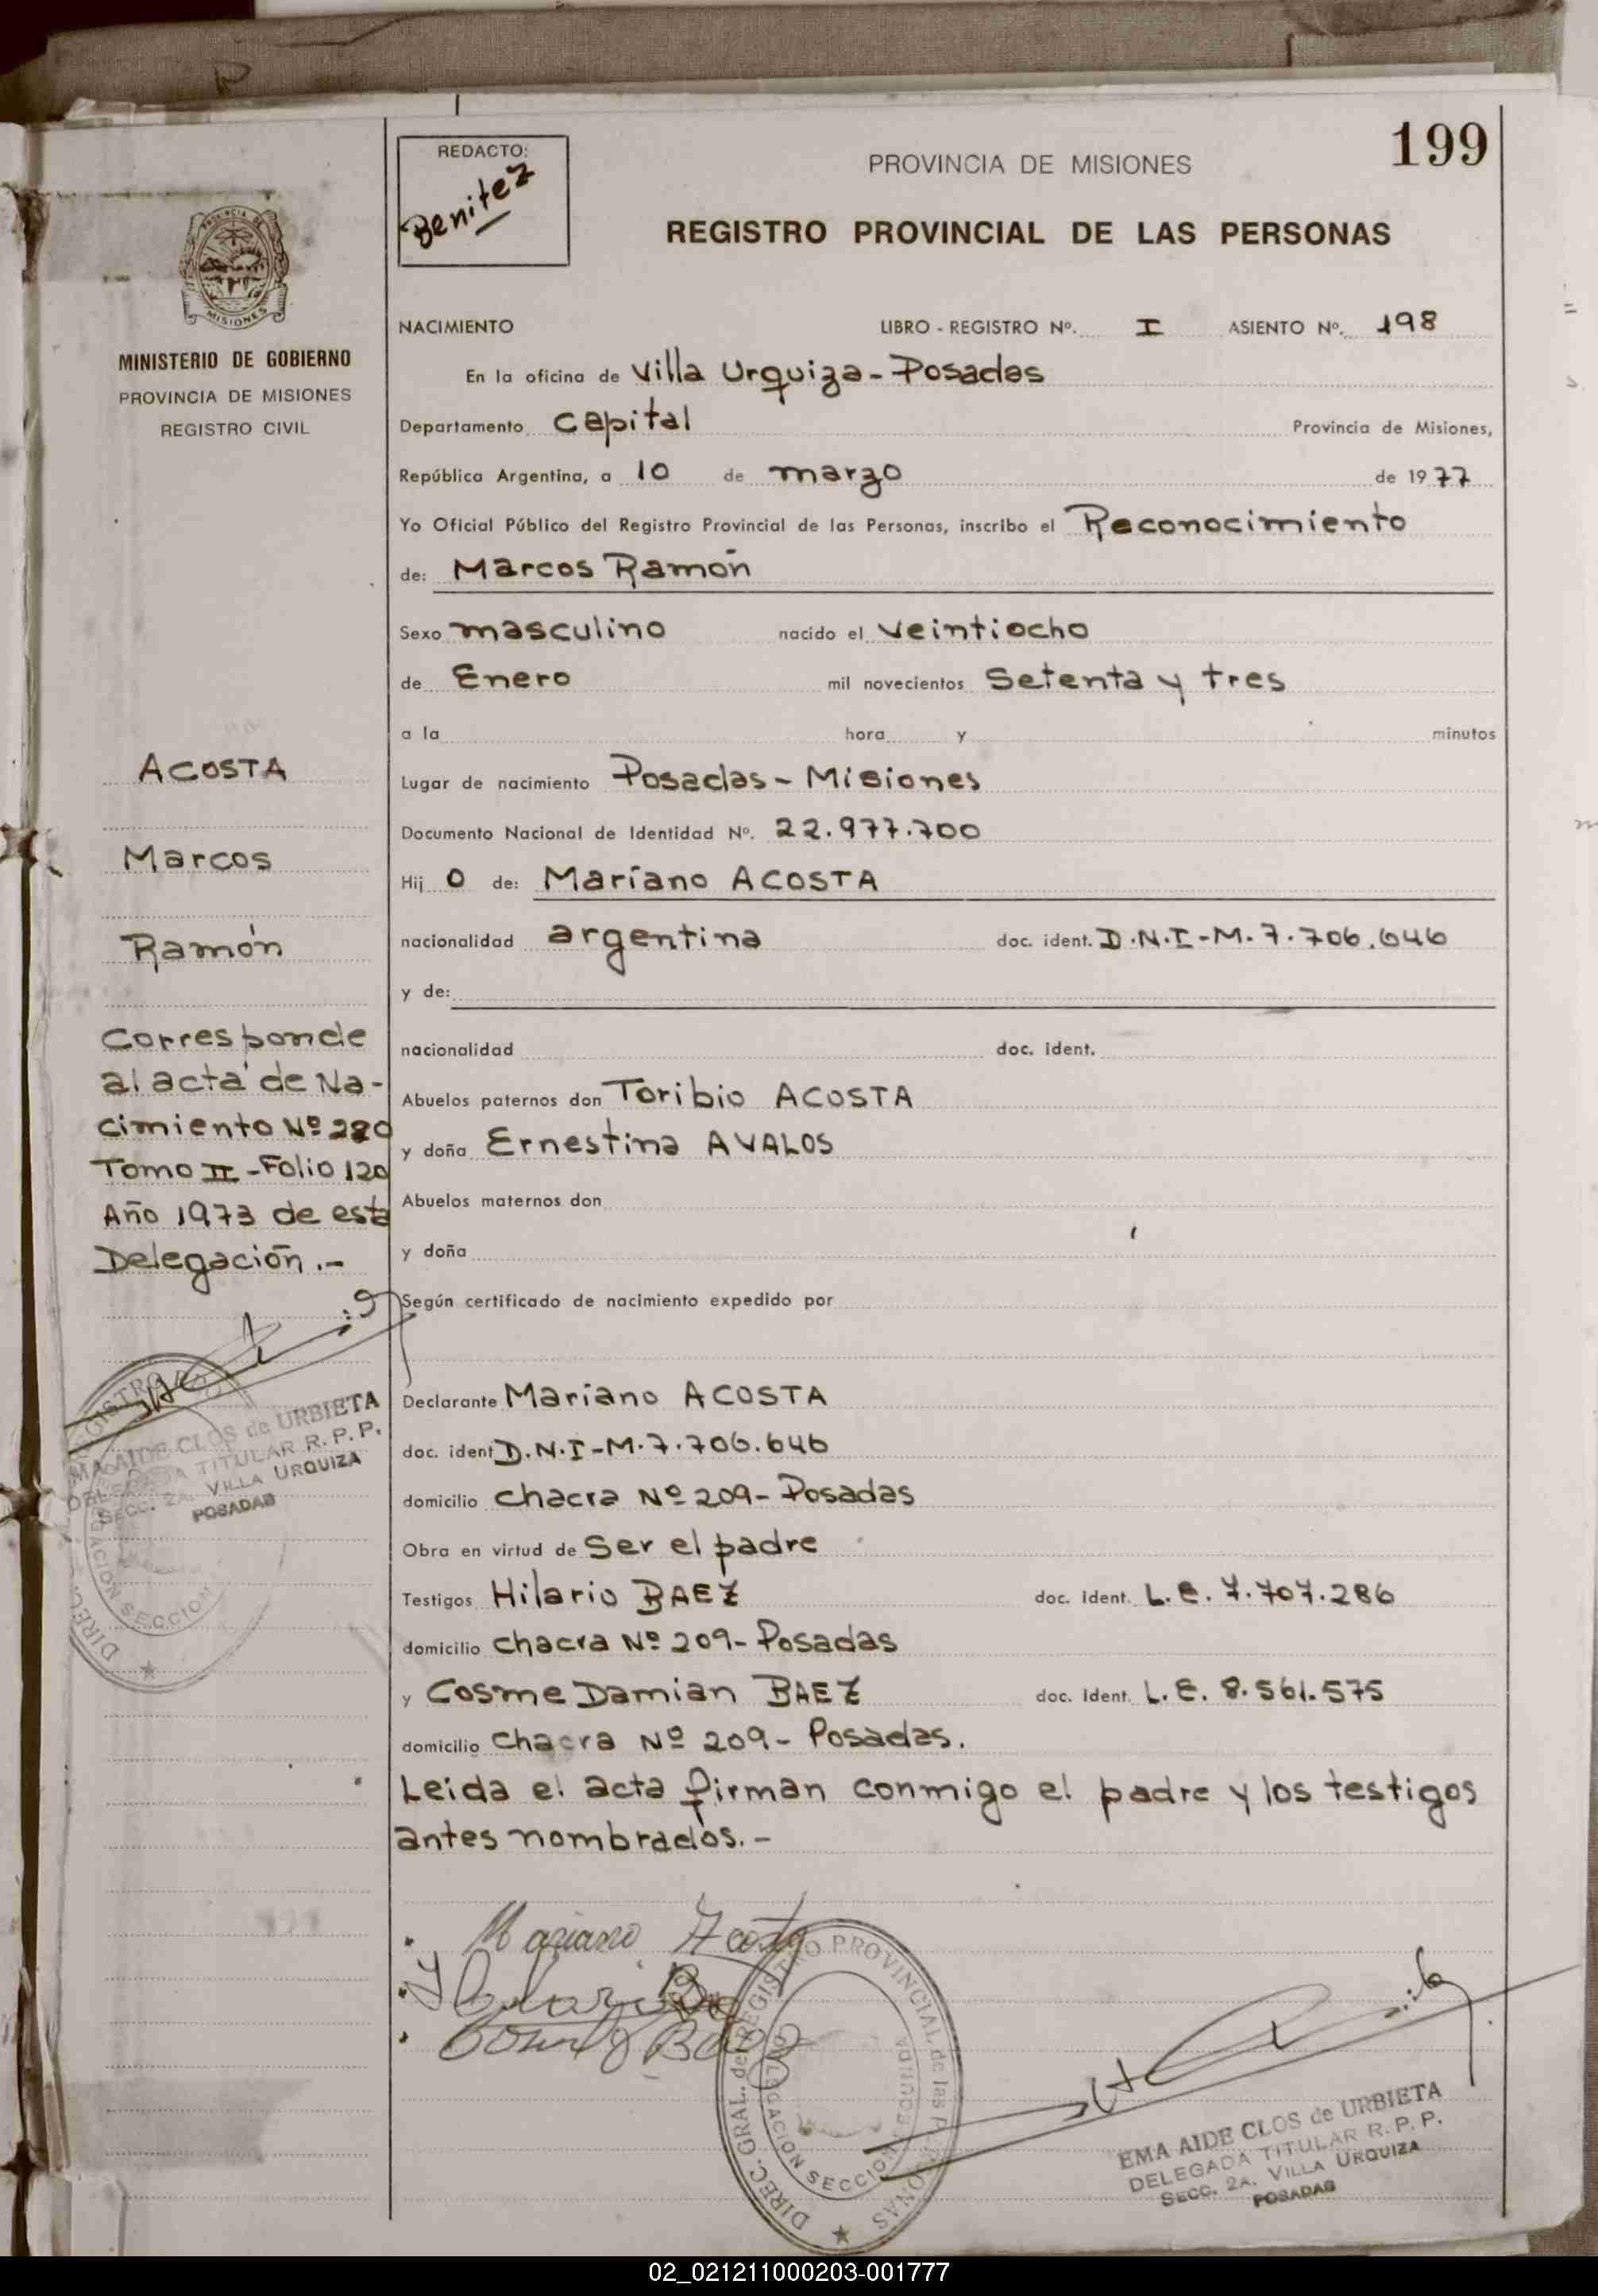 199
REDACTO:
Benitez
PROVINCIA DE MISIONES
REGISTRO PROVINCIAL DE LAS PERSONAS
PROVINCIA DE
MISIONES
MINISTERIO DE GOBIERNO
PROVINCIA DE MISIONES
REGISTRO CIVIL
NACIMIENTO LIBRO - REGISTRO Nº. I ASIENTO Nº. 198
En la oficina de Villa Urquiza - Posadas
Departamento Capital Provincia de Misiones,
República Argentina, a 10 de marzo de 1977
Yo Oficial Público del Registro Provincial de las Personas, inscribo el Reconocimiento
de: Marcos Ramón
Sexo masculino nacido el veintiocho
de Enero mil novecientos Setenta y tres
a la hora y minutos
Lugar de nacimiento Posadas - Misiones
Documento Nacional de Identidad Nº. 22.977.700
Hij o de: Mariano ACOSTA
nacionalidad argentina doc. ident. D.N.I-M.7.706.646
y de:
nacionalidad doc. ident.
Abuelos paternos don Toribio ACOSTA
y doña Ernestina AVALOS
Abuelos maternos don
y doña
Según certificado de nacimiento expedido por
Declarante Mariano ACOSTA
doc. ident D.N.I-M.7.706.646
domicilio chacra Nº 209- Posadas
Obra en virtud de Ser el padre
Testigos Hilario BAEZ doc. ident. L.E. 7.707.286
domicilio chacra Nº 209- Posadas
y Cosme Damian BAEZ doc. ident. L.E. 8.561.575
domicilio chacra Nº 209- Posadas.
Leida el acta firman conmigo el padre y los testigos
antes nombrados.-
ACOSTA
Marcos
Ramón
Corresponde
al acta de Na-
cimiento Nº 280
Tomo II - Folio 120
Año 1973 de esta
Delegación.-
EMA AIDE CLOS de URBIETA
DELEGADA TITULAR R. P. P.
SECC. 2A. VILLA URQUIZA
POSADAS
Mariano Acosta
Hilario Baez
Cosme D Baez
DIREC. GRAL. del REGISTRO PROVINCIAL de las PERSONAS
DELEGACION SECCION SEGUNDA
EMA AIDE CLOS de URBIETA
DELEGADA TITULAR R. P. P.
SECC. 2A. VILLA URQUIZA
POSADAS
02_021211000203-001777